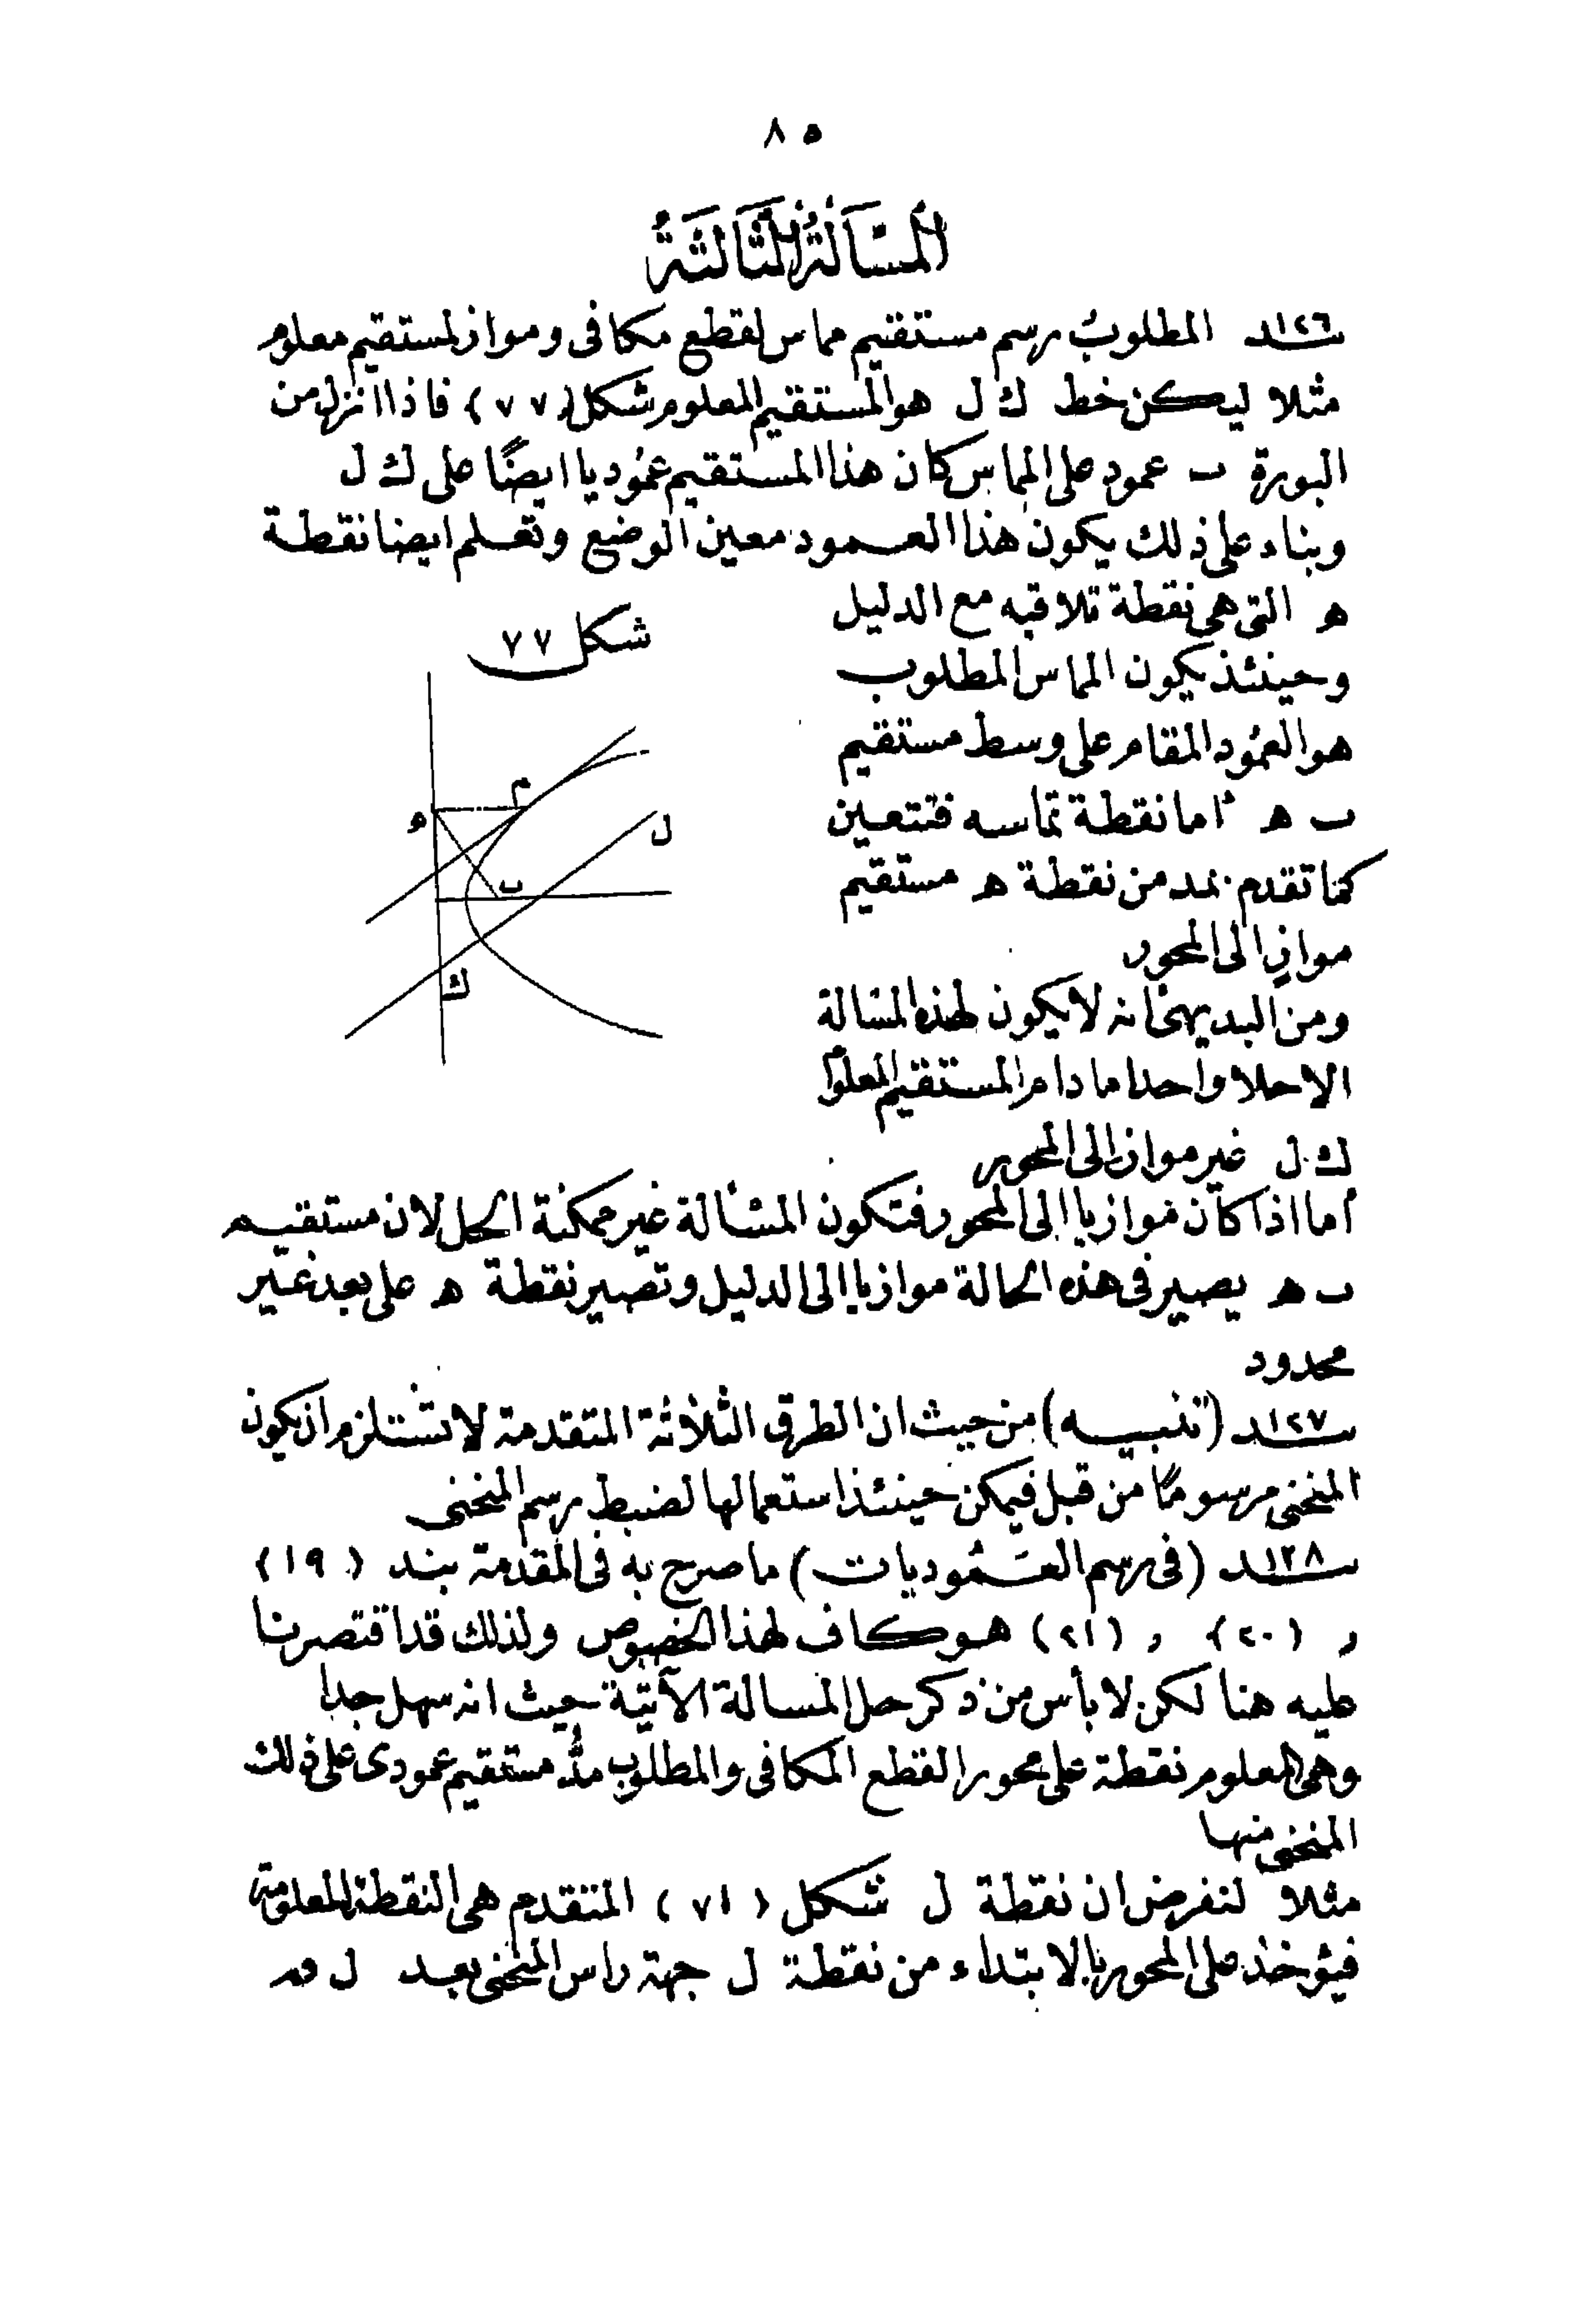 ٨٥
المسألة الثالثة
بند ١٢٦ المطلوب رسم مستقيم مماس لقطع مكافى ومواز لمستقيم معلوم
مثلا ليكن خط ك ل هو المستقيم المعلوم شكل (٧٧) فاذا انزل من
البورة ب عمود على المماس كان هذا المستقيم عموديا ايضًا على ك ل
وبناء على ذلك يكون هذا العمود معين الوضع وتعلم ايضا نقطة
ه التى هى نقطة تلاقيه مع الدليل
وحينئذ يكون المماس المطلوب
هو العمود المقام على وسط مستقيم
ب ه اما نقطة تماسه فتتعين
كما تقدم بمد من نقطة ه مستقيم
مواز الى المحور
ومن البديهى انه لا يكون لهذه المسالة
الا حلا واحدا ما دام المستقيم المعلوم
ك ل غير مواز الى المحور
شكل ٧٧
م
ه
ل
ب
ك
أما اذا كان موازيا الى المحور فتكون المسألة غير ممكنة الحل لان مستقيم
ب ه يصير فى هذه الحالة موازيا الى الدليل وتصير نقطة ه على بعد غير
محدود
بند ١٢٧ (تنبيه) من حيث ان الطرق الثلاثة المتقدمة لا تستلزم ان يكون
المنحنى مرسومًا من قبل فيمكن حينئذ استعمالها لضبط رسم المنحنى
بند ١٢٨ (فى رسم العَمُوديات) ما صرح به فى المقدمة بند (١٩)
و (٢٠) و (٢١) هو كاف لهذا الخصوص ولذلك قد اقتصرنا
عليه هنا لكن لا بأس من ذكر حل المسالة الآتية حيث انه سهل جدا
وهى المعلوم نقطة على محور القطع المكافى والمطلوب مدُّ مستقيم عمودى على ذلك
المنحنى منها
مثلا لنفرض ان نقطة ل شكل (٧١) المتقدم هى النقطة المعلومة
فيؤخذ على المحور بالابتداء من نقطة ل جهة راس المنحنى بعد ل